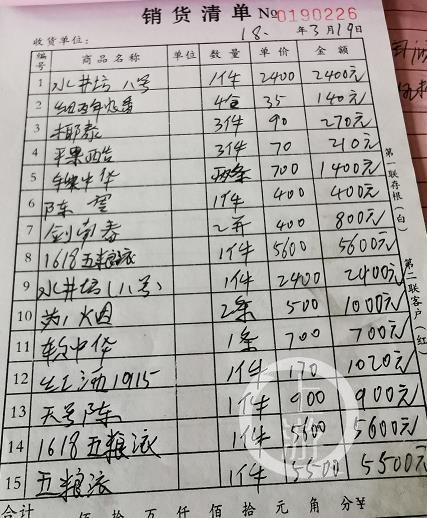 销货清单 №0190226
收货单位: 18. 年3月19日
编号 商品名称 单位 数量 单价 金额
1 水井坊 八号 1件 2400 2400元
2 4仓 35 140元
3 椰泰 3件 90 270元
4 苹果醋 3件 70 210元
5 中华 两条 700 1400元
6 陈 1件 400 400元
7 剑南春 2件 400 800元
8 1618五粮液 1件 5600 5600元
9 水井坊(八号) 1件 2400 2400元
10 2条 500 1000元
11 软中华 1条 700 700元
12 1915 1件 170 1020元
13 天号陈 1件 900 900元
14 1618五粮液 1件 5600 5600元
15 五粮液 1件 5500 5500元
合计 佰 拾 万 仟 佰 拾 元 角 分¥
第一联存根(白)
第二联客户(红)
上游